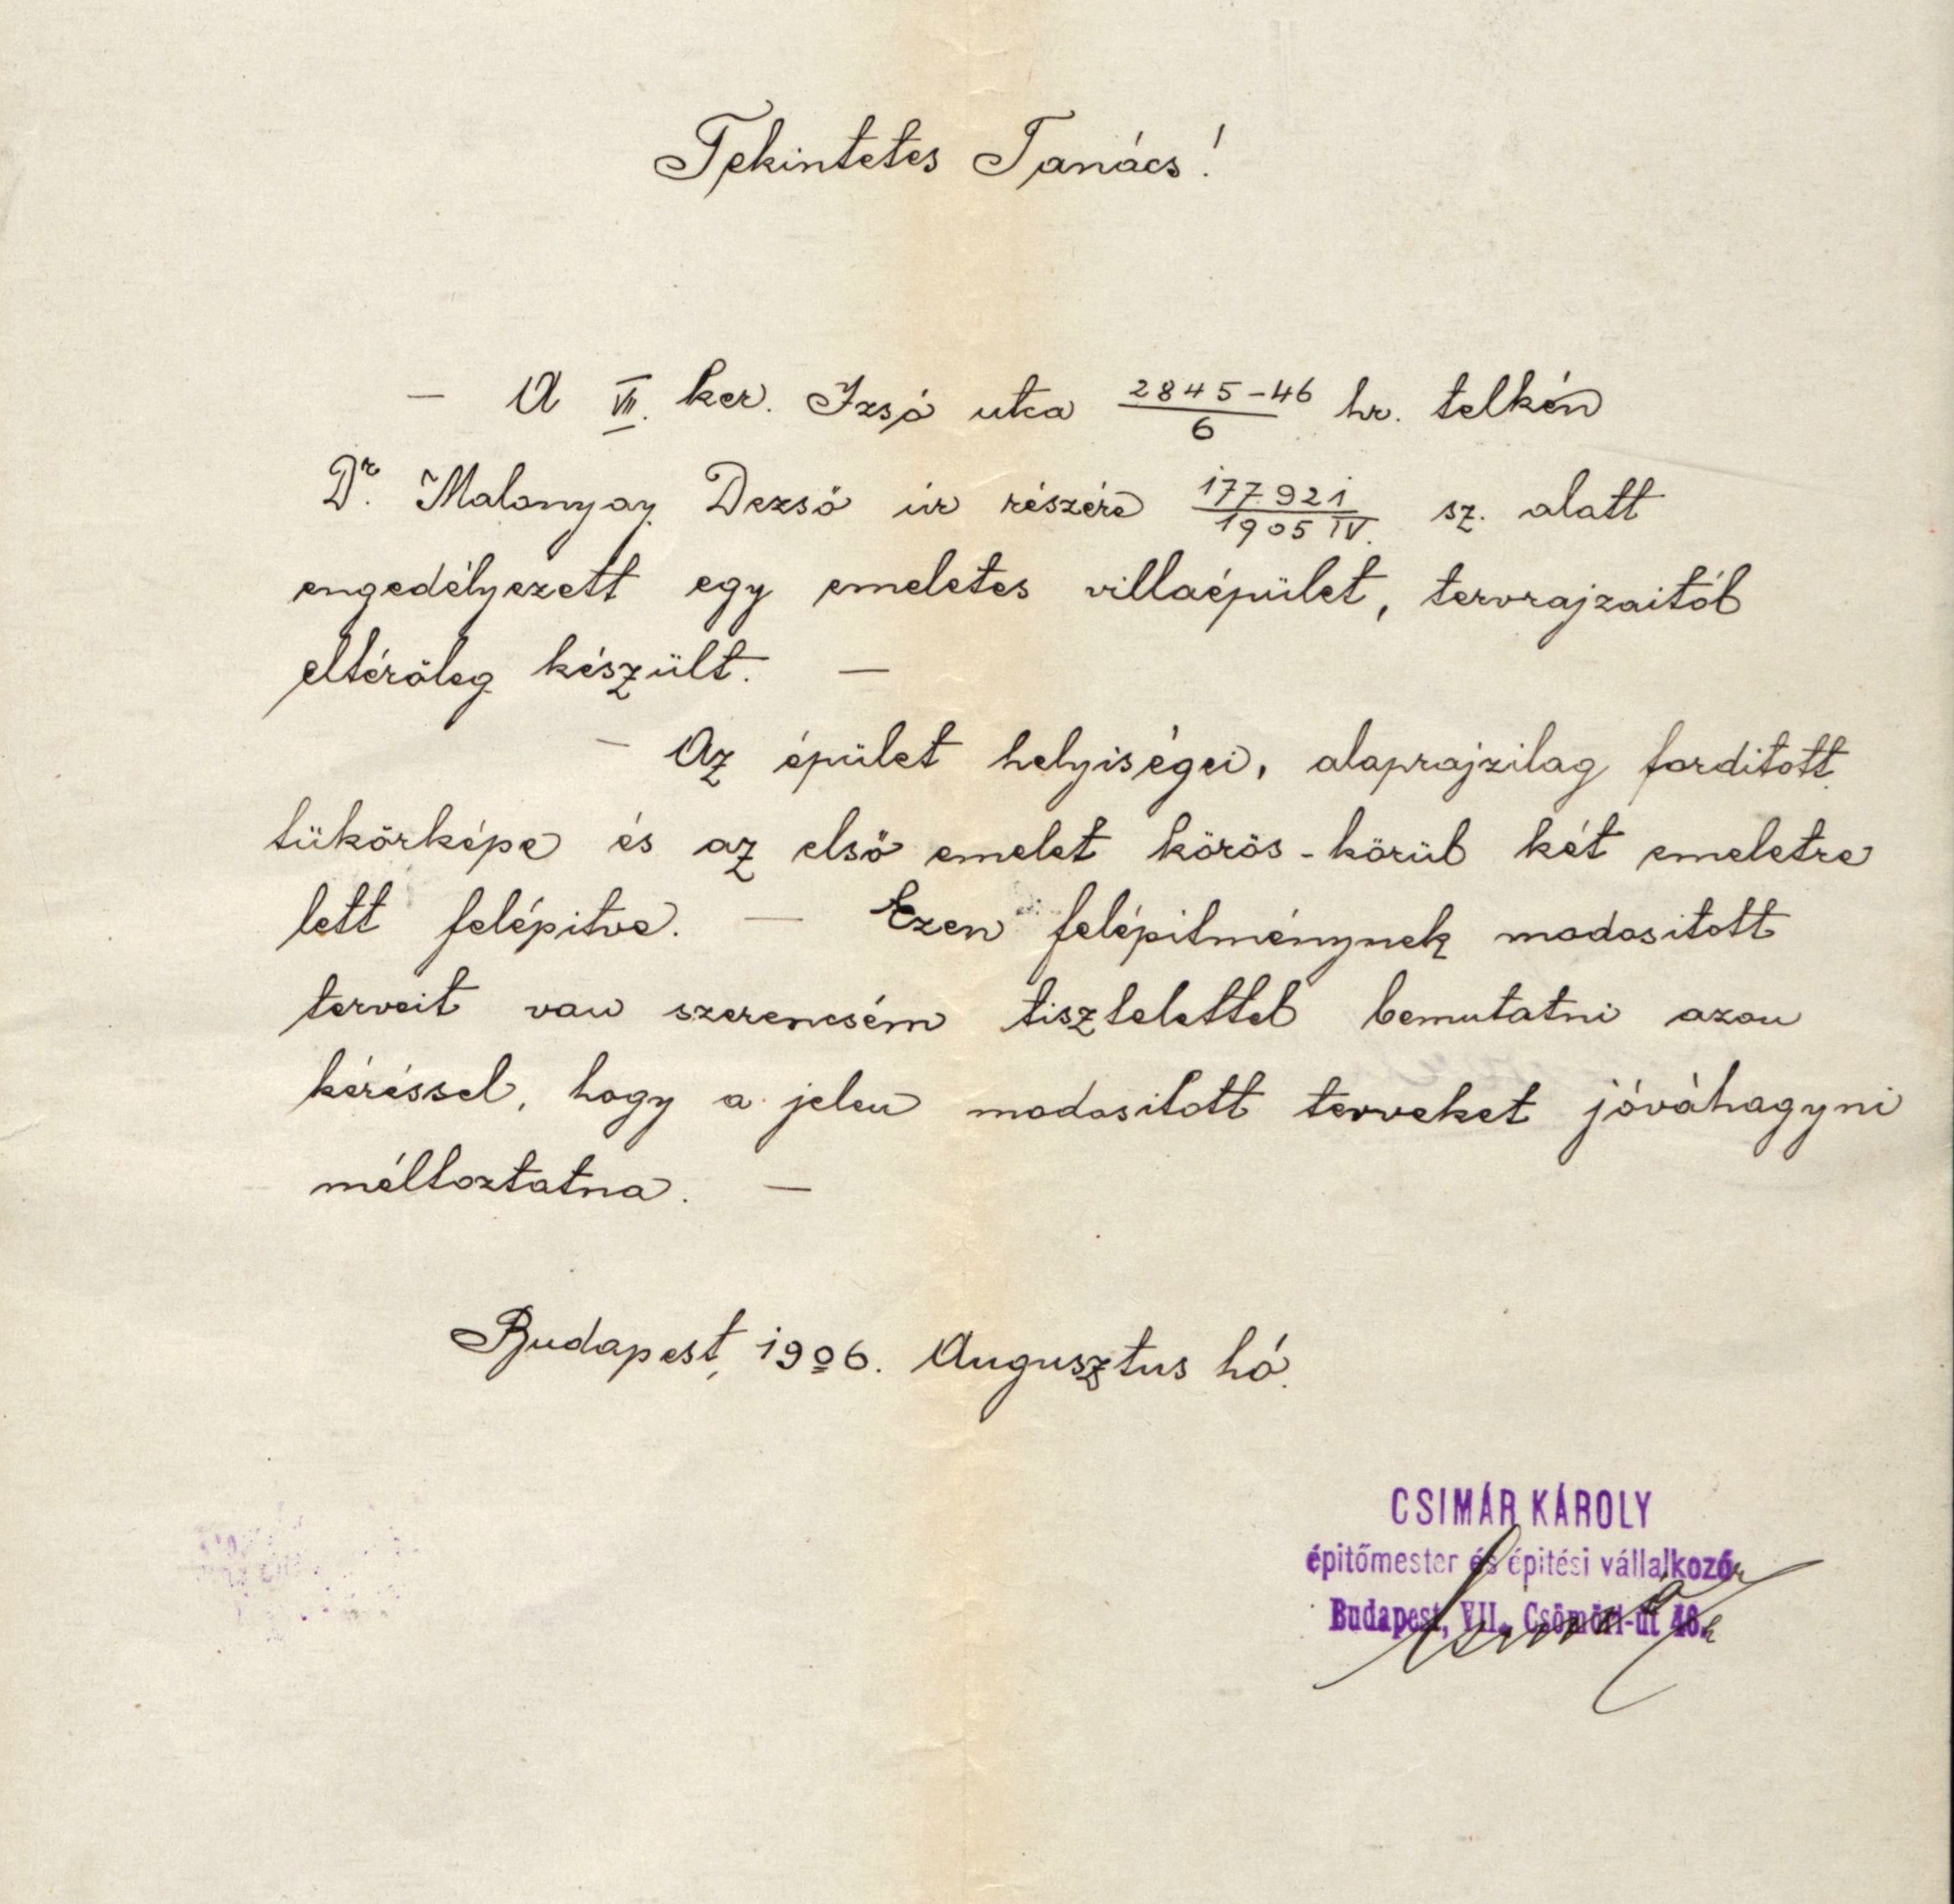 Tekintetes Tanács!
— A VII. ker. Izsó utca 2845-46/6 hr. telkén
Dr. Malonyay Dezső úr részére 177921/1905 IV. sz. alatt
engedélyezett egy emeletes villaépület, tervrajzaitól
eltérőleg készült. —
— Az épület helyiségei, alaprajzilag forditott
tükörképe és az első emelet körös-körül két emeletre
lett felépitve. — Ezen felépitménynek modositott
terveit van szerencsém tisztelettel bemutatni azon
kéréssel, hogy a jelen modositott terveket jóváhagyni
méltoztatna. —
Budapest, 1906. Augusztus hó.
CSIMÁR KÁROLY
épitőmester és épitési vállalkozó
Budapest, VII., Csömöri-út